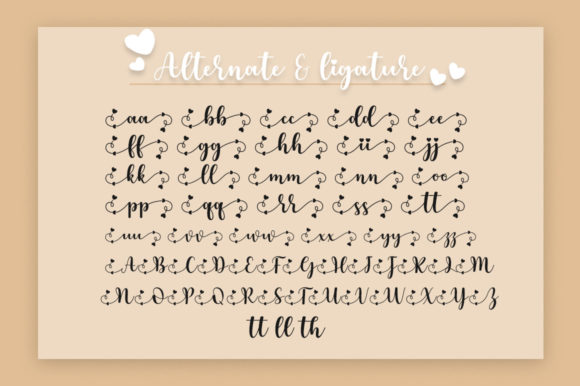 Alternate & ligature
aa bb cc dd ee
ff gg hh ii jj
kk ll mm nn oo
pp qq rr ss tt
uu vv ww xx yy zz
A B C D E F G H I J K L M
N O P Q R S T U V W X Y Z
tt ll th